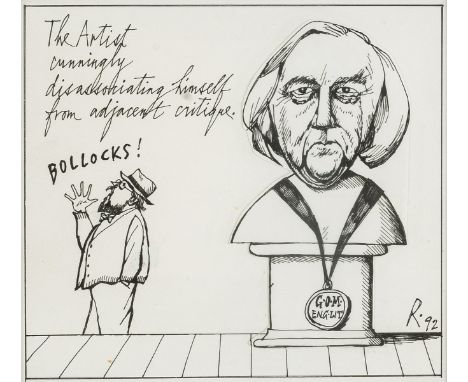 The Artist
cunningly
disassociating himself
from adjacent critique.
BOLLOCKS!
G.O.M.
ENG.LIT
R. 92